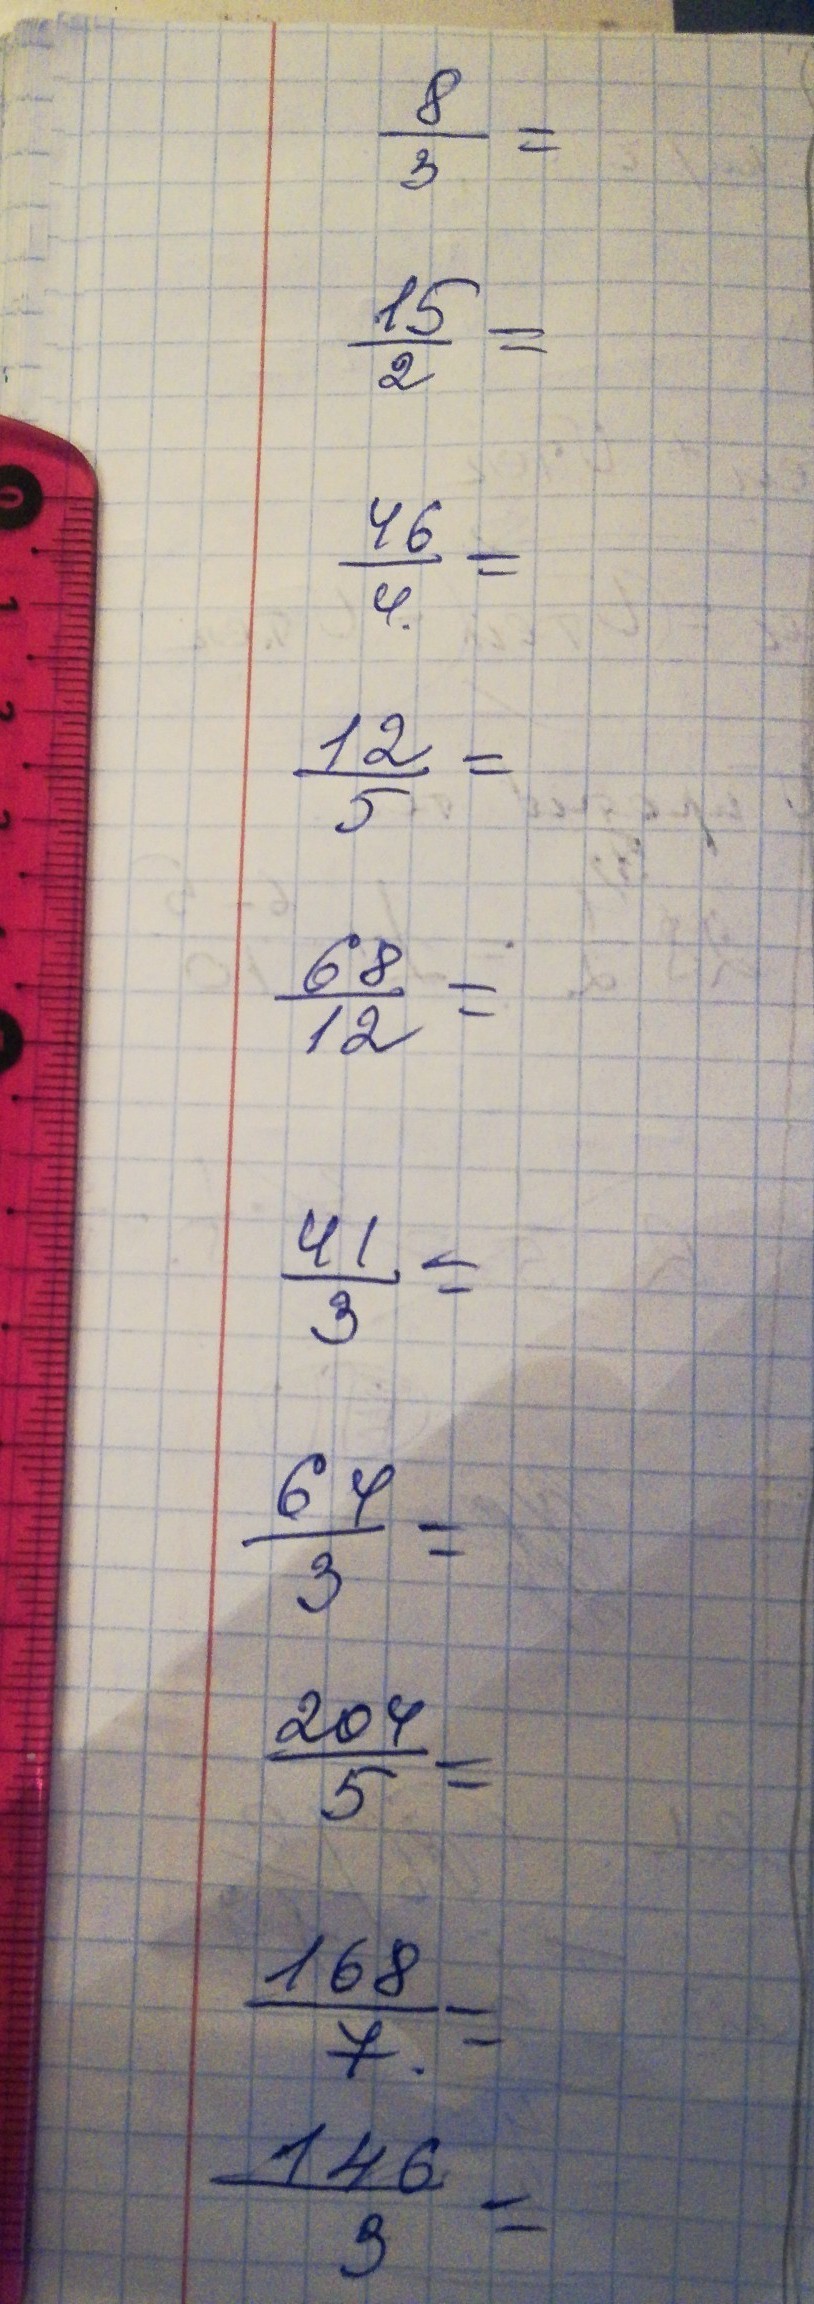 8/3 =
15/2 =
46/4 =
12/5 =
68/12 =
41/3 =
64/3 =
204/5 =
168/7 =
146/3 =
0
1
2
3